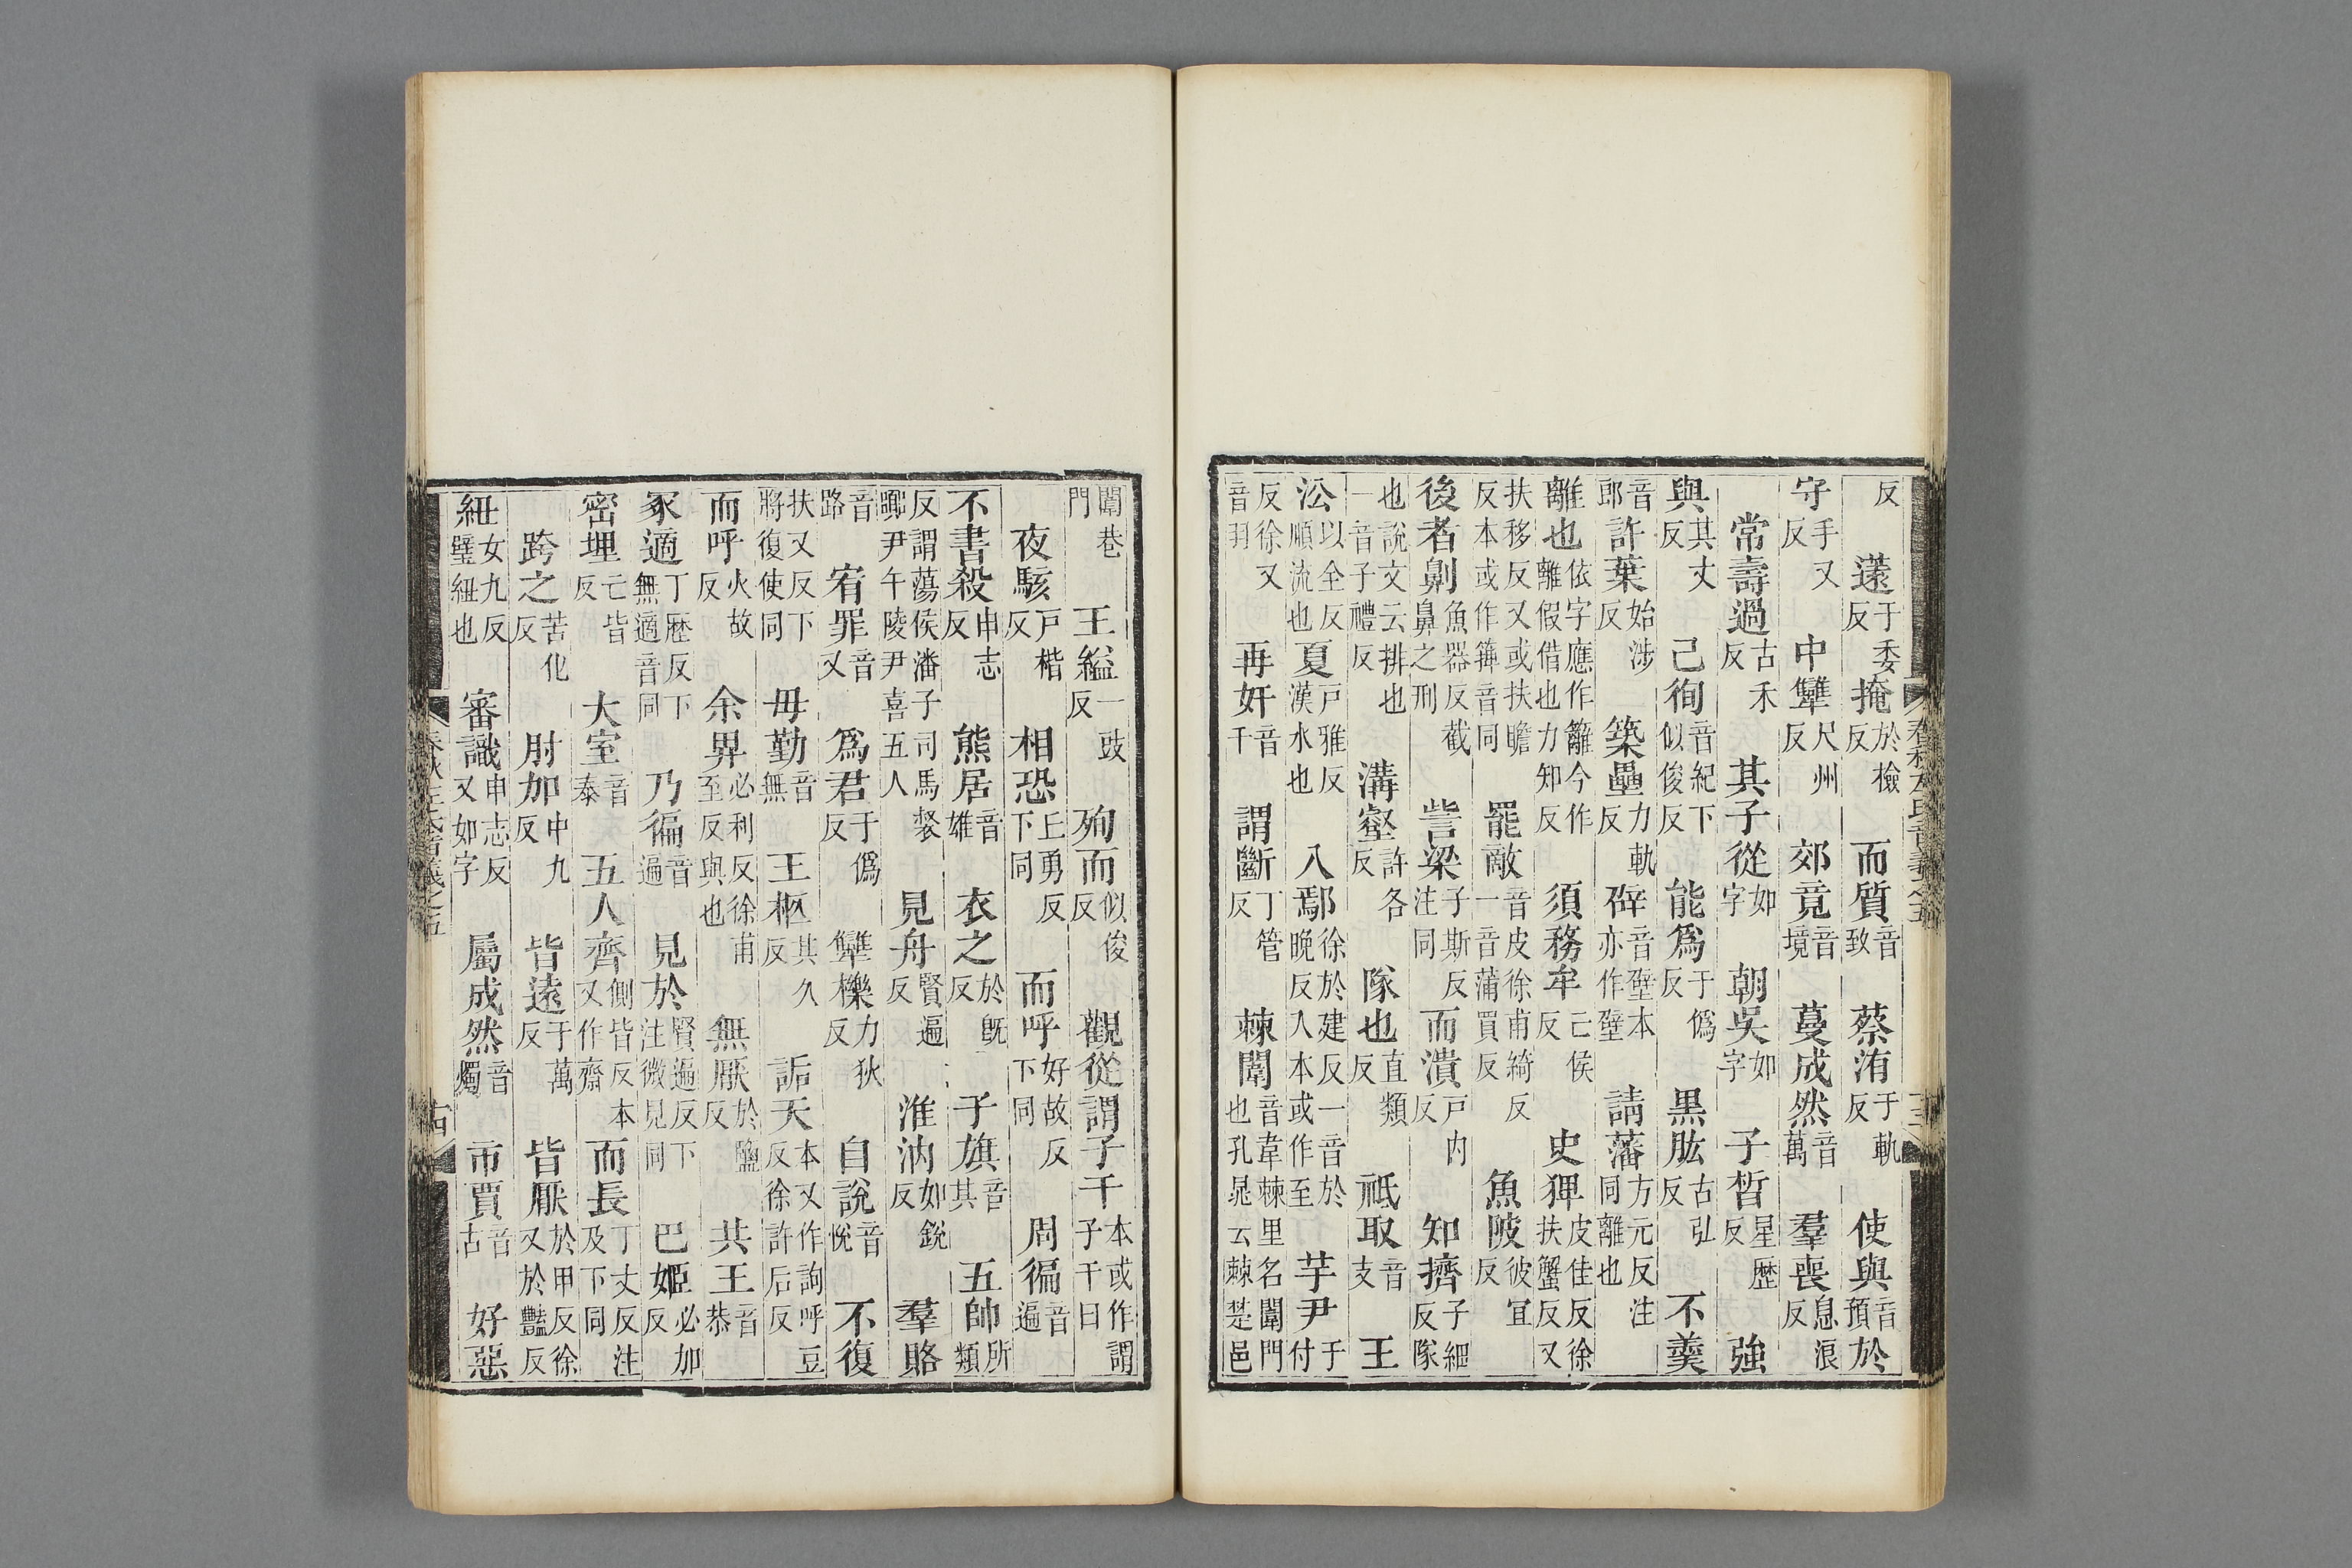 反　薳于委反掩於檢反　而質音致　蔡洧于軌反　使與音預於
守手又反　中犫尺州反　郊竟音境　蔓成然音萬　羣喪息浪反
常壽過古禾反　其子從如字　朝吳如字　子晳星歷反　強
與其丈反　己徇音紀下似俊反　能爲于僞反　黑肱古弘反　不羹
音郎　許葉始涉反　築壘力軌反　硸音壁本亦作壁　請藩方元反注同離也
離也依字應作籬今作離假借也力知反　須務牟亡侯反　史猈皮佳反徐扶蟹反又
扶移反又或扶瞻反本或作篺音同　罷敵音皮徐甫綺反一音蒲買反　魚陂彼宜反
後者劓魚器反截鼻之刑　訾梁子斯反注同　而潰戶內反　知擠子細反隊
也說文云排也一音子禮反　溝壑許各反　隊也直類反　祗取音支　王
沿以全反順流也　夏戶雅反漢水也　入鄢徐於建反一音於晚反入本或作至　芋尹于付
反徐又音羽　再奸音干　謂斷丁管反　棘闈音韋棘里名闈門也孔晁云棘楚邑
闈巷門　王縊一豉反　殉而似俊反　觀從謂子干本或作謂子干曰
夜駭戶楷反　相恐丘勇反下同　而呼好故反下同　周徧音遍
不書殺申志反　熊居音雄　衣之於旣反　子旗音其　五帥所類
反謂蕩侯潘子司馬督嚻尹午陵尹喜五人　見舟賢遍反　淮汭如銳反　羣賂
音路　宥罪音又　爲君于僞反　犫櫟力狄反　自說音悅　不復
扶又反下將復使同　毋勤音無　王柩其久反　詬天本又作詢呼豆反徐許后反
而呼火故反　余畀必利反徐甫至反與也　無厭於鹽反　共王音恭
冢適丁歷反下無適音同　乃徧音遍　見於賢遍反下注微見同　巴姬必加反
密埋亡皆反　大室音泰　五人齊側皆反本又作齋　而長丁丈反注及下同
跨之苦化反　肘加中九反　皆遠于萬反　皆厭於甲反徐又於豔反
紐女九反璧紐也　審識申志反又如字　屬成然音燭　市賈音古　好惡